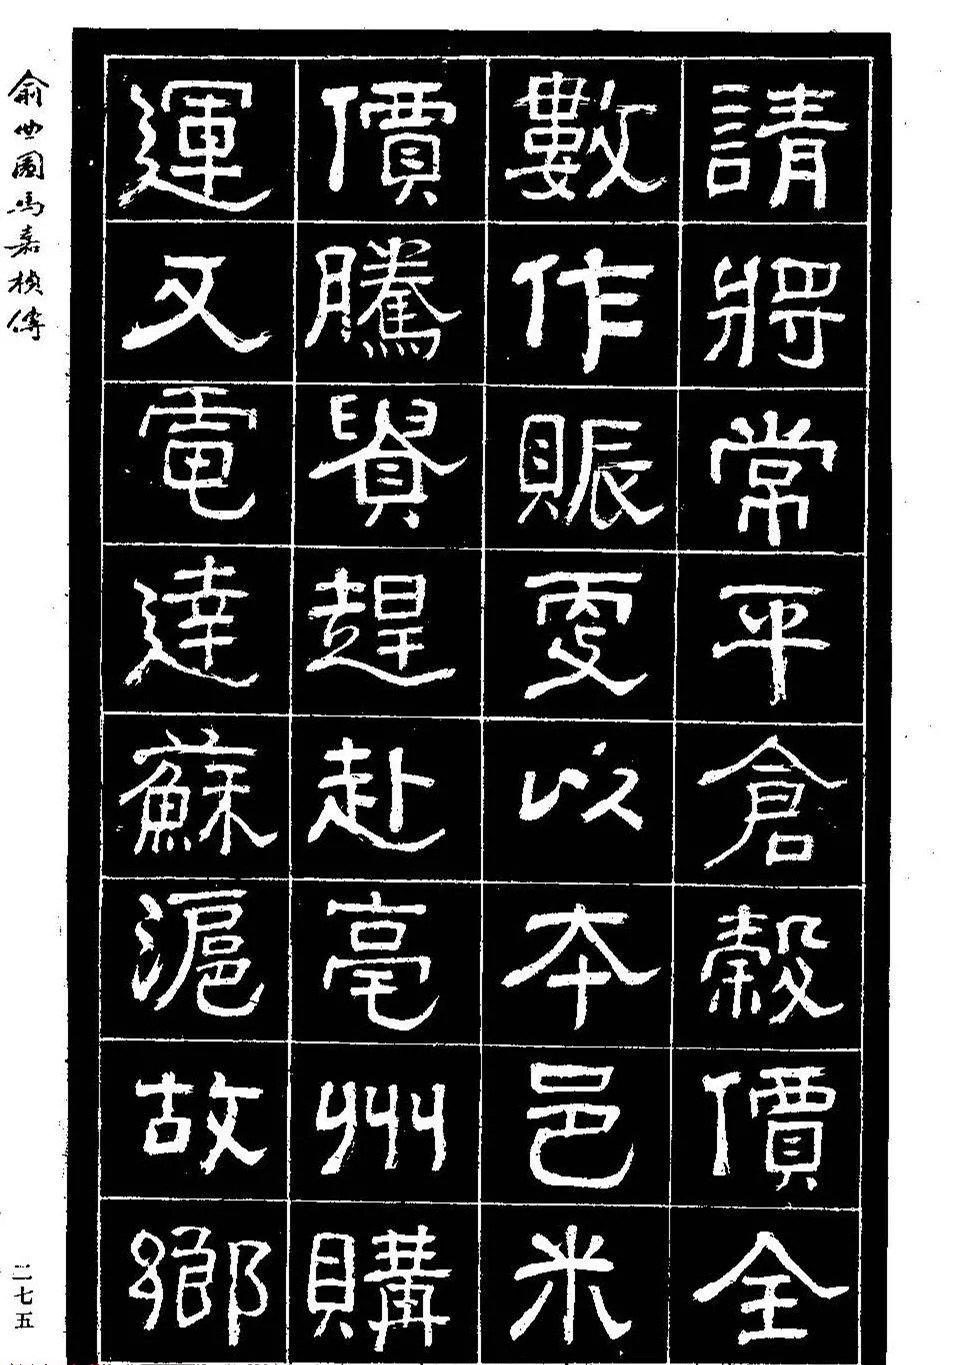 請將常平倉穀價全
數作賑更以本邑米
價騰貴趕赴亳州購
運又電達蘇滬故鄉
俞曲園馬嘉楨傳
二七五